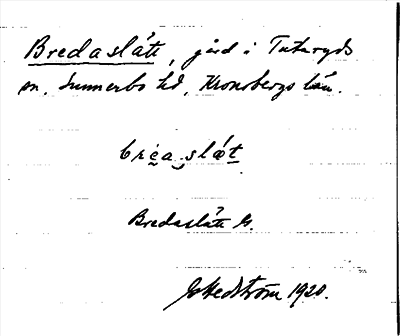 Bredaslätt, gård i Tutaryds
sn. Sunnerbo hd, Kronobergs län.
breaslæt
Bredaslätt G.
G. Hedström 1920.